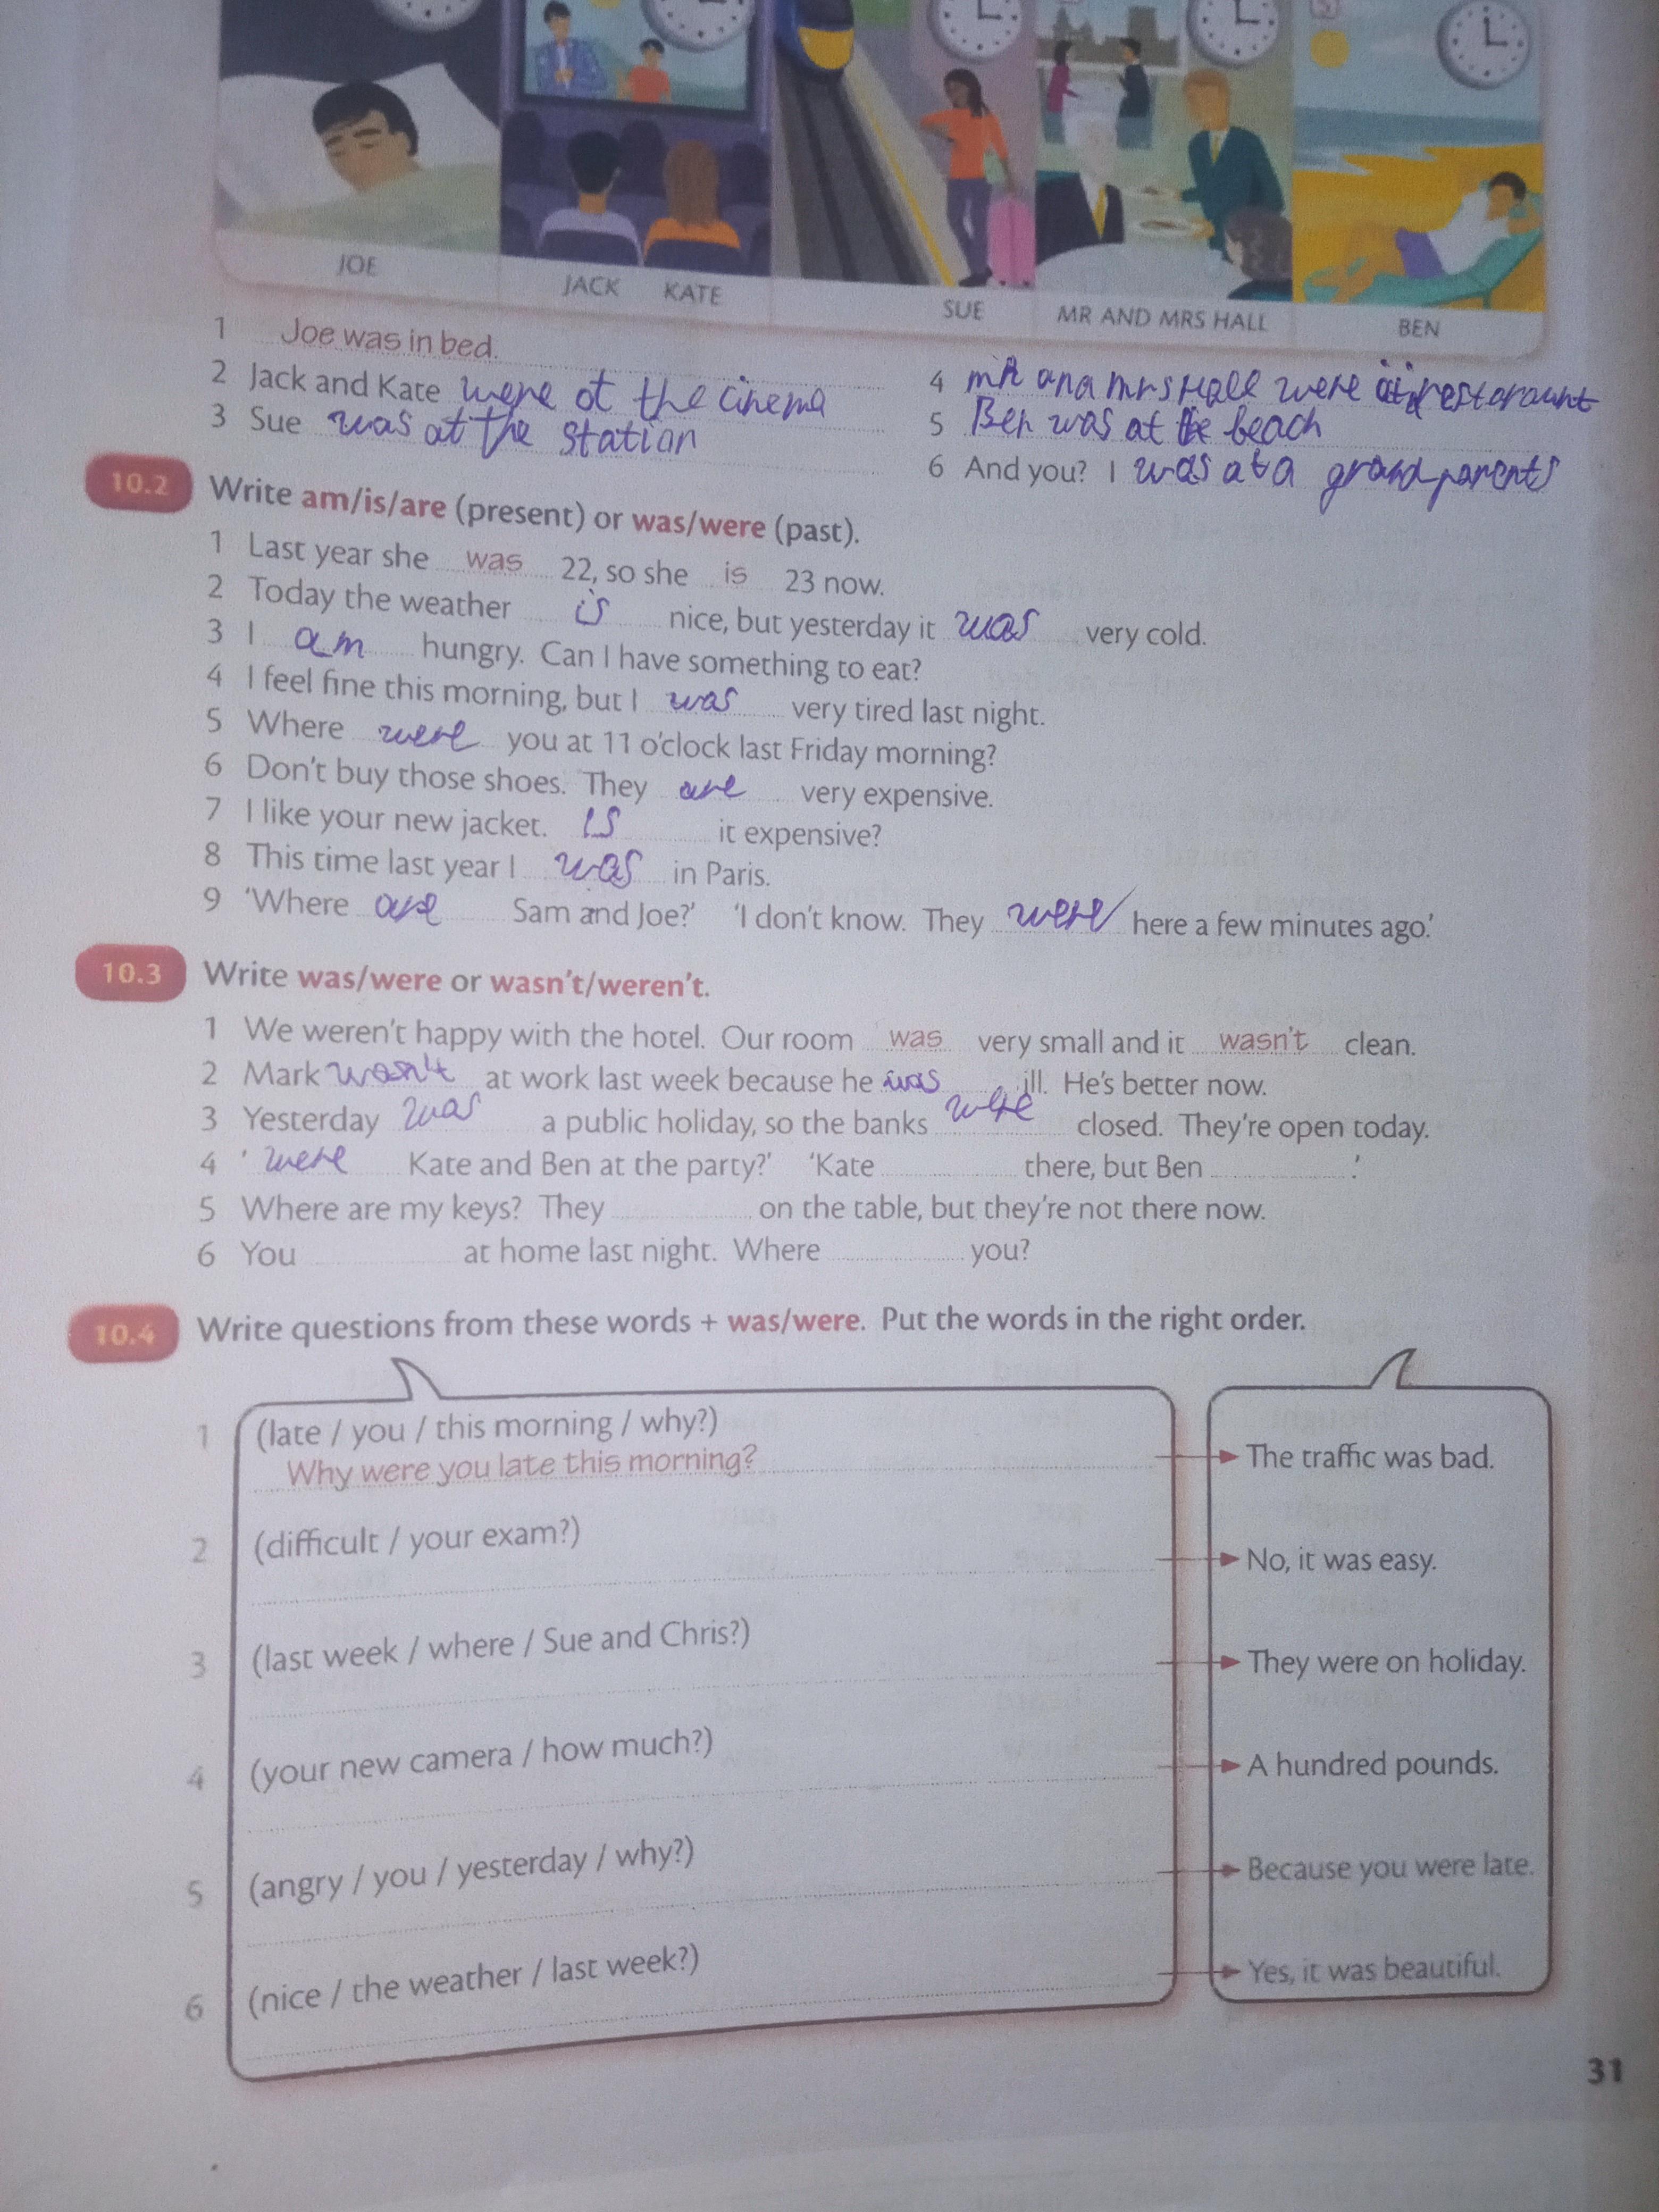 JOE
JACK KATE
SUE
MR AND MRS HALL
BEN
1 Joe was in bed.
2 Jack and Kate were at the cinema
3 Sue was at the station
4 mR and mrs Hall were restaraunt
5 Ben was at the beach
6 And you? I was at a grandparents
10.2 Write am/is/are (present) or was/were (past).
1 Last year she was 22, so she is 23 now.
2 Today the weather is nice, but yesterday it was very cold.
3 I am hungry. Can I have something to eat?
4 I feel fine this morning, but I was very tired last night.
5 Where were you at 11 o'clock last Friday morning?
6 Don't buy those shoes. They are very expensive.
7 I like your new jacket. Is it expensive?
8 This time last year I was in Paris.
9 'Where are Sam and Joe?' 'I don't know. They were here a few minutes ago.'
10.3 Write was/were or wasn't/weren't.
1 We weren't happy with the hotel. Our room was very small and it wasn't clean.
2 Mark wasn't at work last week because he was ill. He's better now.
3 Yesterday was a public holiday, so the banks were closed. They're open today.
4 'were Kate and Ben at the party?' 'Kate there, but Ben .'
5 Where are my keys? They on the table, but they're not there now.
6 You at home last night. Where you?
10.4 Write questions from these words + was/were. Put the words in the right order.
1 (late / you / this morning / why?)
Why were you late this morning?
The traffic was bad.
2 (difficult / your exam?)
No, it was easy.
3 (last week / where / Sue and Chris?)
They were on holiday.
4 (your new camera / how much?)
A hundred pounds.
5 (angry / you / yesterday / why?)
Because you were late.
6 (nice / the weather / last week?)
Yes, it was beautiful.
31